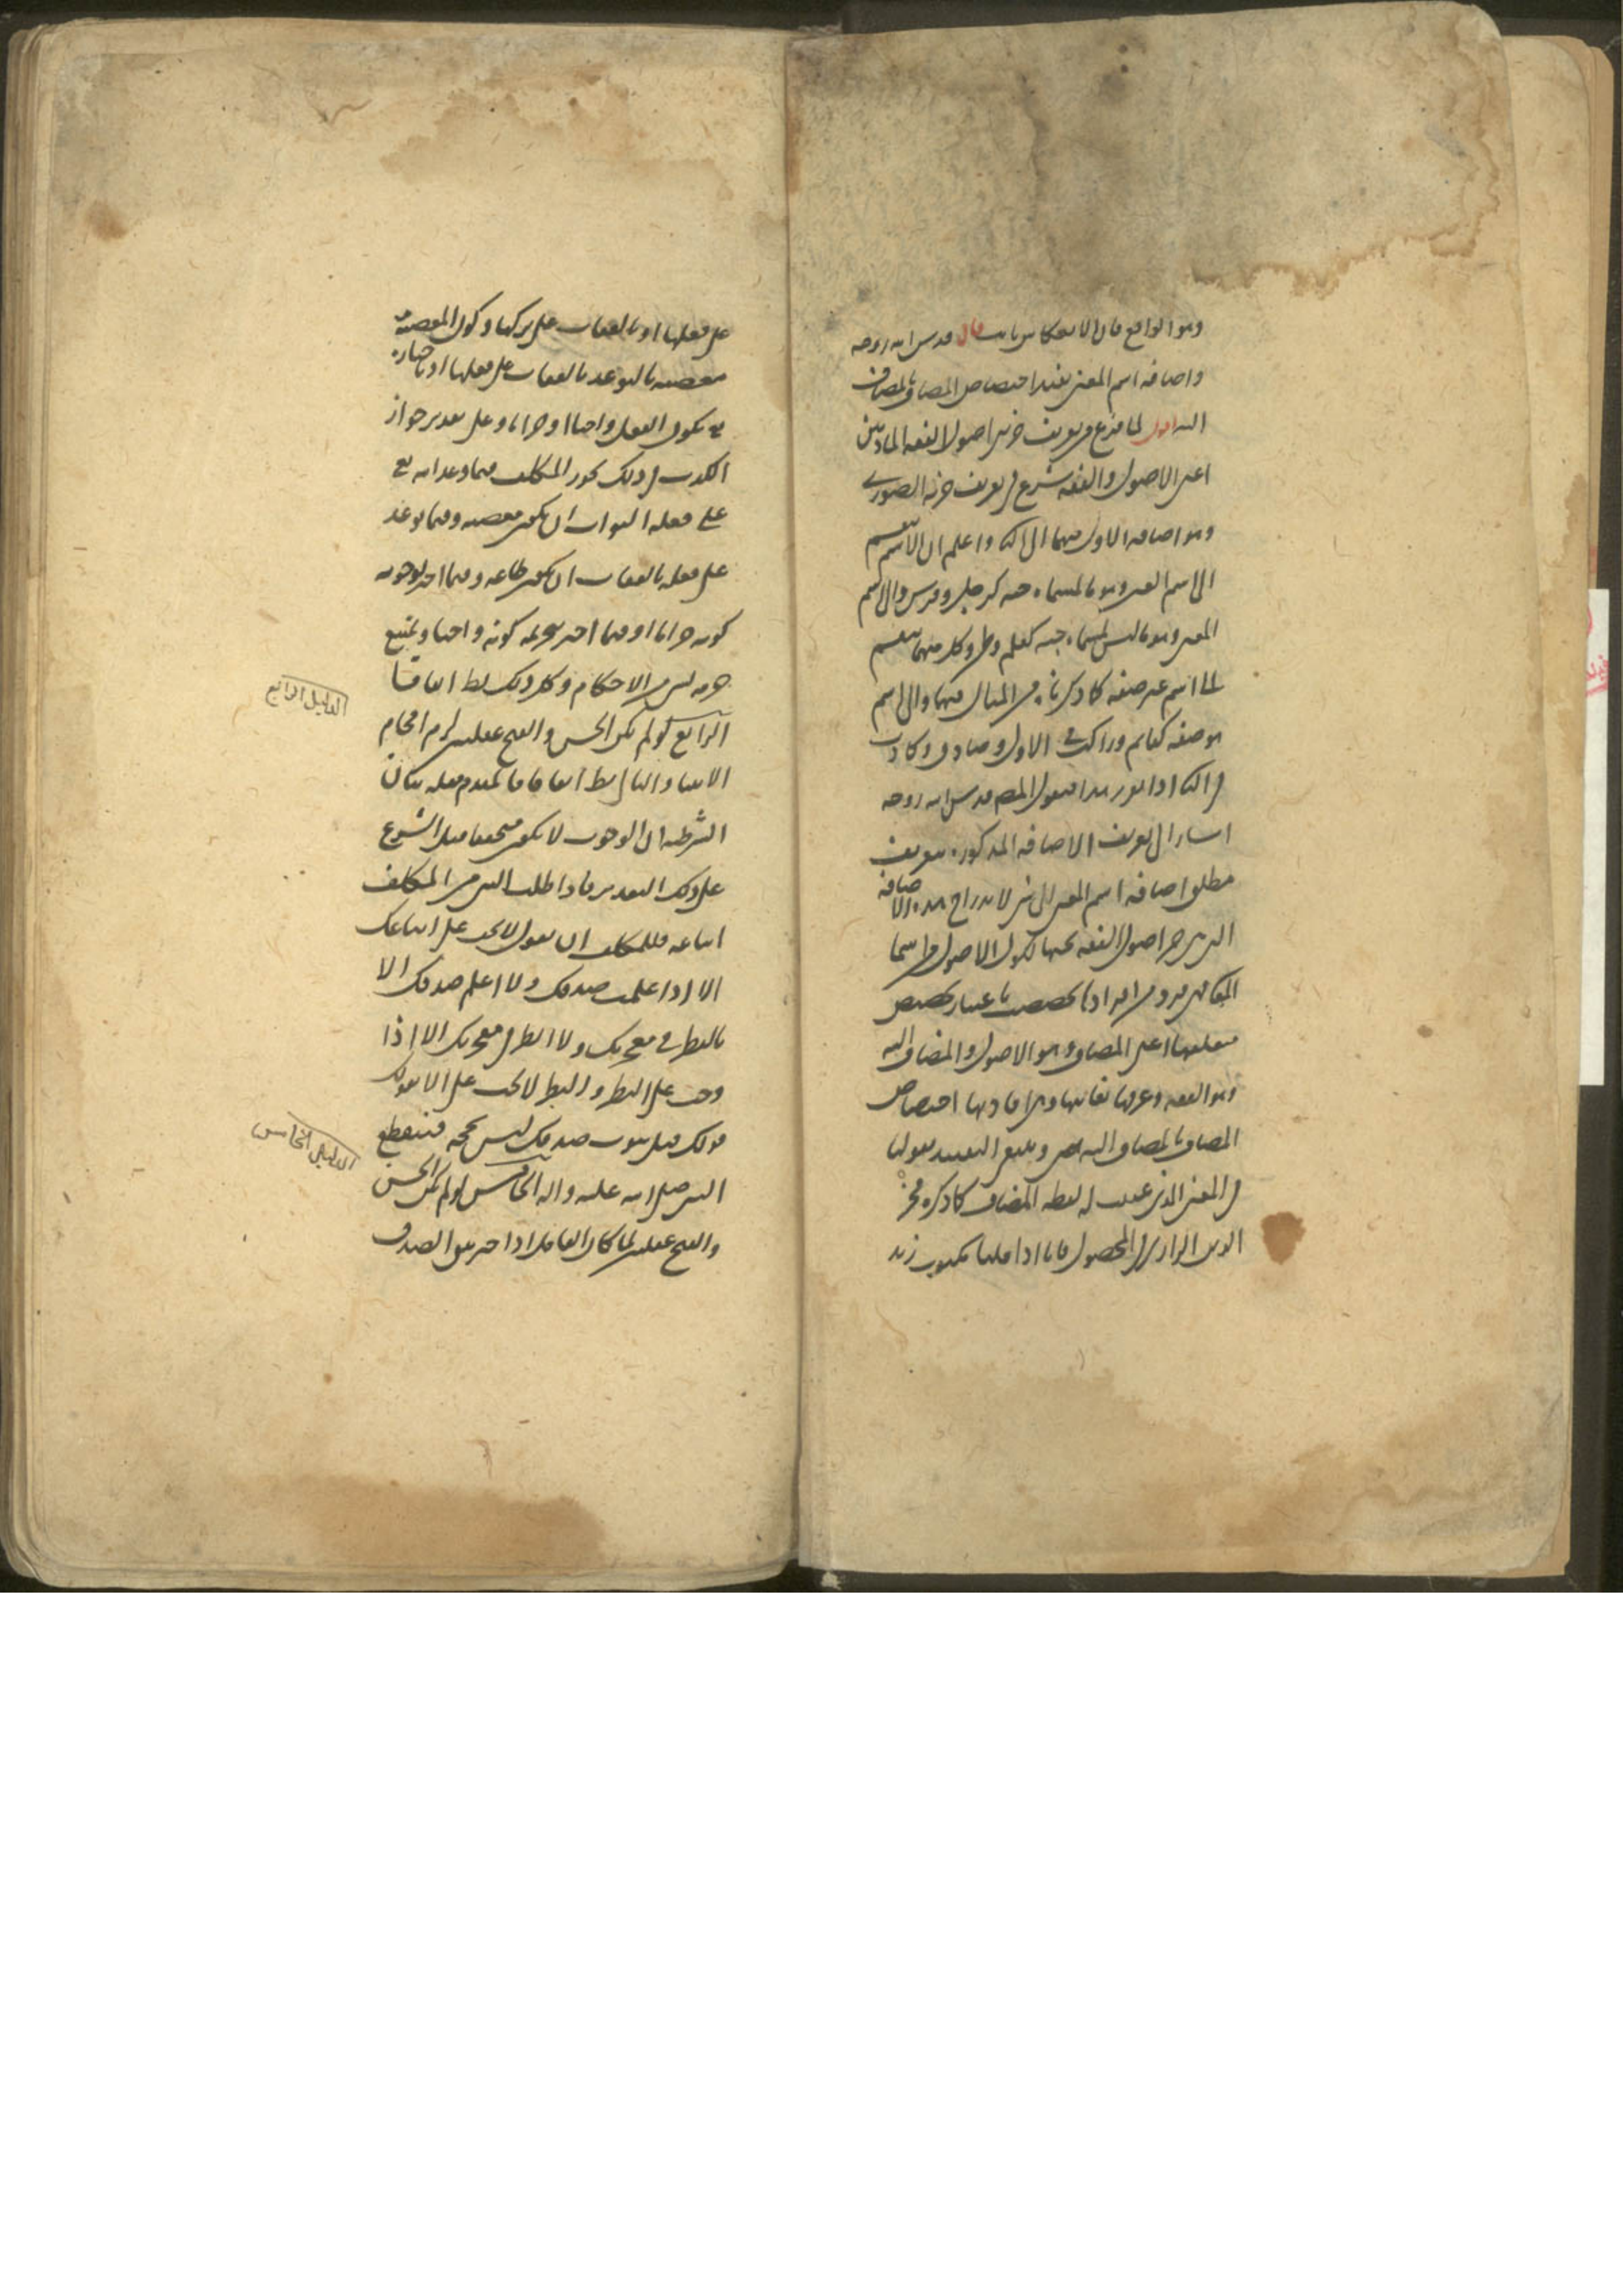 وهو الواقع فان الانعكاس ثابت قال قدس الله روحه
واضافه اسم المعنى يفيد اختصاص المضاف بالمضاف
اليه اقول لما فرغ من تعريف جزئى اصول الفقه الماديين
اعنى الاصول والفقه شرع فى تعريف جزئه الصورى
وهو اضافه الاول منهما الى الثانى واعلم ان الاسم ينقسم
الى اسم العين وهو ما لمسماه جثه كرجل وفرس والى اسم
المعنى وهو ما ليس لمسماه جثه كعلم وظن وكل منهما ينقسم
الى اسم غير صفه كما ذكرناه من المثال فيهما والى اسم
هو صفه كقايم وراكب فى الاول وصادق وكاذب
فى الثانى اذا تقرر هذا فنقول المصنف قدس الله روحه
اشار الى تعريف الاضافه المذكوره بتعريف
مطلق اضافه اسم المعنى الى شى لاندراج هذه الاضافه
التى هى جزء اصول الفقه تحتها لكون الاصول اسما
لمعنى فهى فرد من افرادها تخصصت باعتبار تخصص
متعلقها اعنى المضاف وهو الاصول والمضاف اليه
وهو الفقه وعرفها بغايتها وهى افادتها اختصاص
المضاف بالمضاف اليه وينبغى التقييد بقولنا
فى المعنى الذى عينت له لفظه المضاف كما ذكره فخر
الدين الرازى فى المحصول فانا اذا قلنا مكتوب زيد
على فعلها او بالعقاب على تركها وكون المعصيه
معصيه بالتوعد بالعقاب على فعلها او باخباره
تع بكون الفعل واجبا او حراما وعلى تقدير جواز
الكذب فى ذلك يجوز المكلف فيما وعد الله تع
على فعله الثواب ان يكون معصيه وفيما توعد
على فعله بالعقاب ان يكون طاعه وفيما اخبر بوجوبه
كونه حراما وفيما اخبر بتحريمه كونه واجبا ويمتنع
جزمه بشى من الاحكام وكل ذلك بط اتفاقا
الرابع لو لم يكن الحسن والقبح عقليين لزم افحام
الانبيا والتالى بط اتفاقا فالمقدم مثله بيان
الشرطيه ان الوجوب لا يكون متحققا قبل الشرع
على ذلك التقدير فاذا طلب النبى من المكلف
اتباعه فللمكلف ان يقول لا يجب على اتباعك
الا اذا علمت صدقك ولا اعلم صدقك الا
بالنظر فى معجزتك ولا انظر فى معجزتك الا اذا
وجب على النظر والنظر لا يجب على الا بقولك
قولك قبل ثبوت صدقك ليس بحجه فينقطع
النبى صلى الله عليه واله الخامس لو لم يكن الحسن
والقبح عقليين لما كان العاقل اذا خير بين الصدق
الدليل الرابع
الدليل الخامس